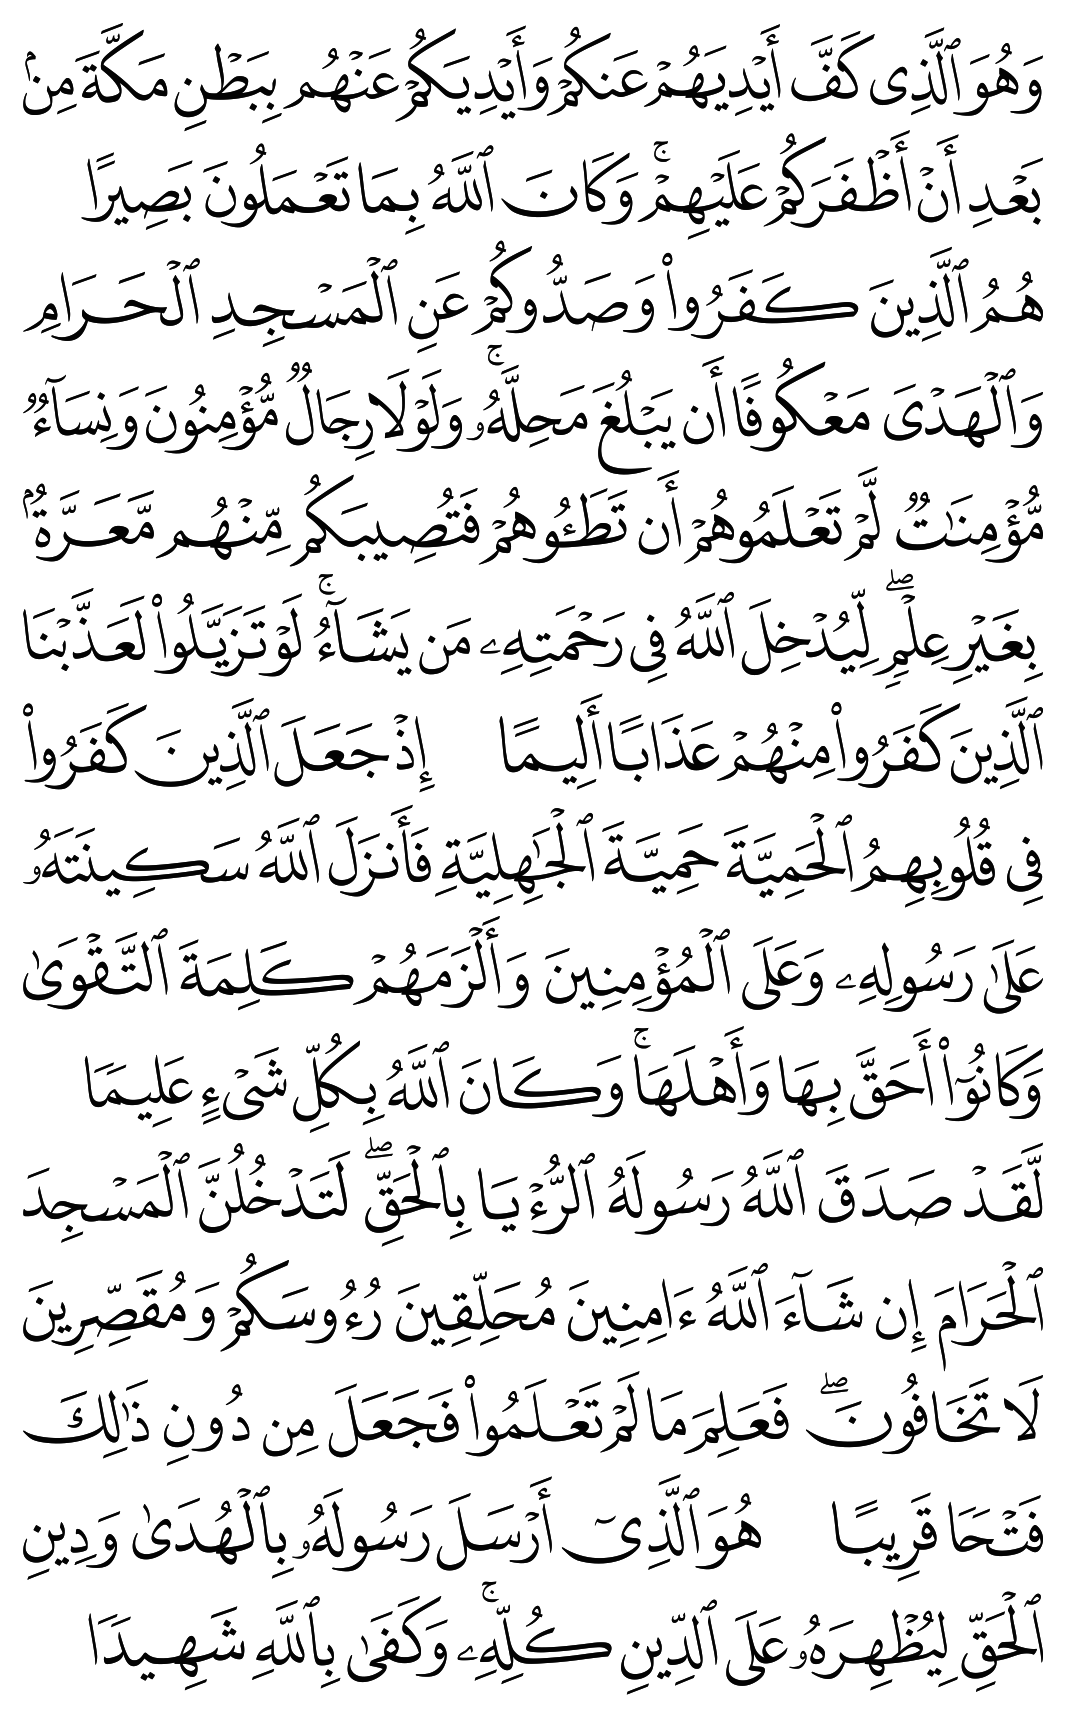 وَهُوَ ٱلَّذِى كَفَّ أَيْدِيَهُمْ عَنكُمْ وَأَيْدِيَكُمْ عَنْهُم بِبَطْنِ مَكَّةَ مِنۢ
بَعْدِ أَنْ أَظْفَرَكُمْ عَلَيْهِمْ ۚ وَكَانَ ٱللَّهُ بِمَا تَعْمَلُونَ بَصِيرًا
هُمُ ٱلَّذِينَ كَفَرُوا۟ وَصَدُّوكُمْ عَنِ ٱلْمَسْجِدِ ٱلْحَرَامِ
وَٱلْهَدْىَ مَعْكُوفًا أَن يَبْلُغَ مَحِلَّهُۥ ۚ وَلَوْلَا رِجَالٌ مُّؤْمِنُونَ وَنِسَآءٌ
مُّؤْمِنَـٰتٌ لَّمْ تَعْلَمُوهُمْ أَن تَطَـُٔوهُمْ فَتُصِيبَكُم مِّنْهُم مَّعَرَّةٌۢ
بِغَيْرِ عِلْمٍ ۖ لِّيُدْخِلَ ٱللَّهُ فِى رَحْمَتِهِۦ مَن يَشَآءُ ۚ لَوْ تَزَيَّلُوا۟ لَعَذَّبْنَا
ٱلَّذِينَ كَفَرُوا۟ مِنْهُمْ عَذَابًا أَلِيمًا إِذْ جَعَلَ ٱلَّذِينَ كَفَرُوا۟
فِى قُلُوبِهِمُ ٱلْحَمِيَّةَ حَمِيَّةَ ٱلْجَـٰهِلِيَّةِ فَأَنزَلَ ٱللَّهُ سَكِينَتَهُۥ
عَلَىٰ رَسُولِهِۦ وَعَلَى ٱلْمُؤْمِنِينَ وَأَلْزَمَهُمْ كَلِمَةَ ٱلتَّقْوَىٰ
وَكَانُوٓا۟ أَحَقَّ بِهَا وَأَهْلَهَا ۚ وَكَانَ ٱللَّهُ بِكُلِّ شَىْءٍ عَلِيمًا
لَّقَدْ صَدَقَ ٱللَّهُ رَسُولَهُ ٱلرُّءْيَا بِٱلْحَقِّ ۖ لَتَدْخُلُنَّ ٱلْمَسْجِدَ
ٱلْحَرَامَ إِن شَآءَ ٱللَّهُ ءَامِنِينَ مُحَلِّقِينَ رُءُوسَكُمْ وَمُقَصِّرِينَ
لَا تَخَافُونَ ۖ فَعَلِمَ مَا لَمْ تَعْلَمُوا۟ فَجَعَلَ مِن دُونِ ذَٰلِكَ
فَتْحًا قَرِيبًا هُوَ ٱلَّذِىٓ أَرْسَلَ رَسُولَهُۥ بِٱلْهُدَىٰ وَدِينِ
ٱلْحَقِّ لِيُظْهِرَهُۥ عَلَى ٱلدِّينِ كُلِّهِۦ ۚ وَكَفَىٰ بِٱللَّهِ شَهِيدًا